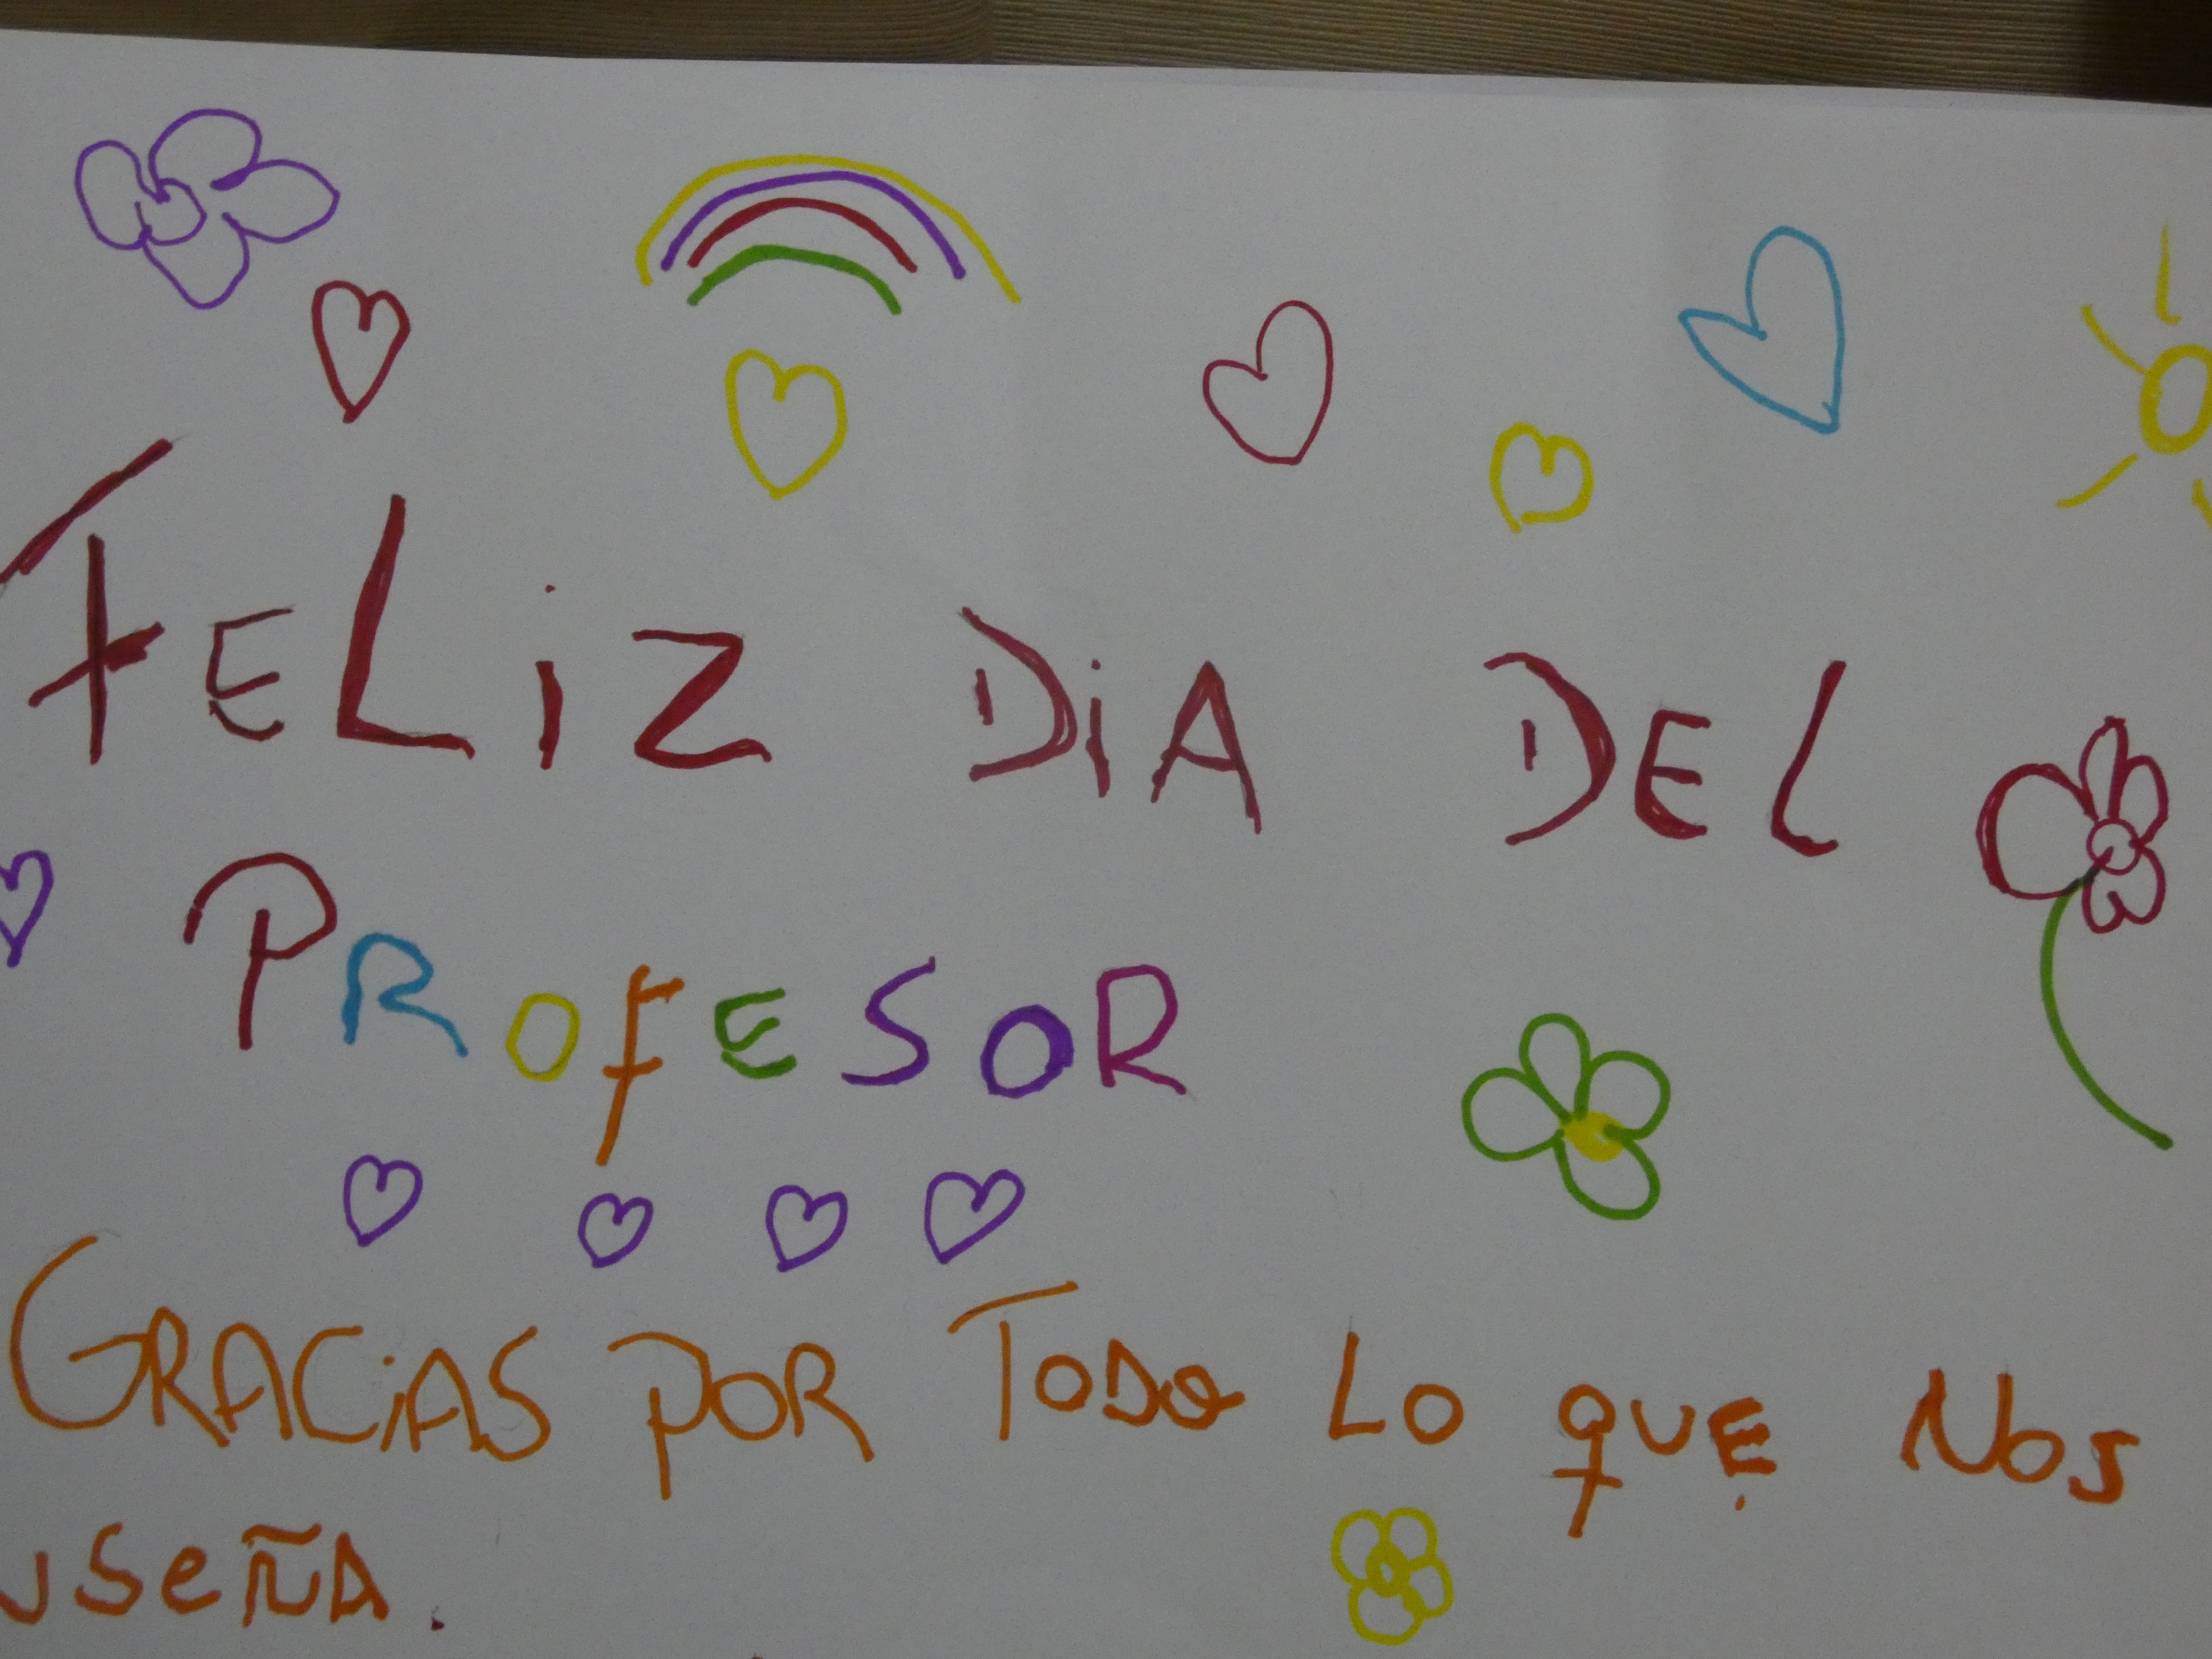 FELiZ DiA DEL
PROFESOR
GRACiAS POR TODO LO QUE NOS
NSEÑA.